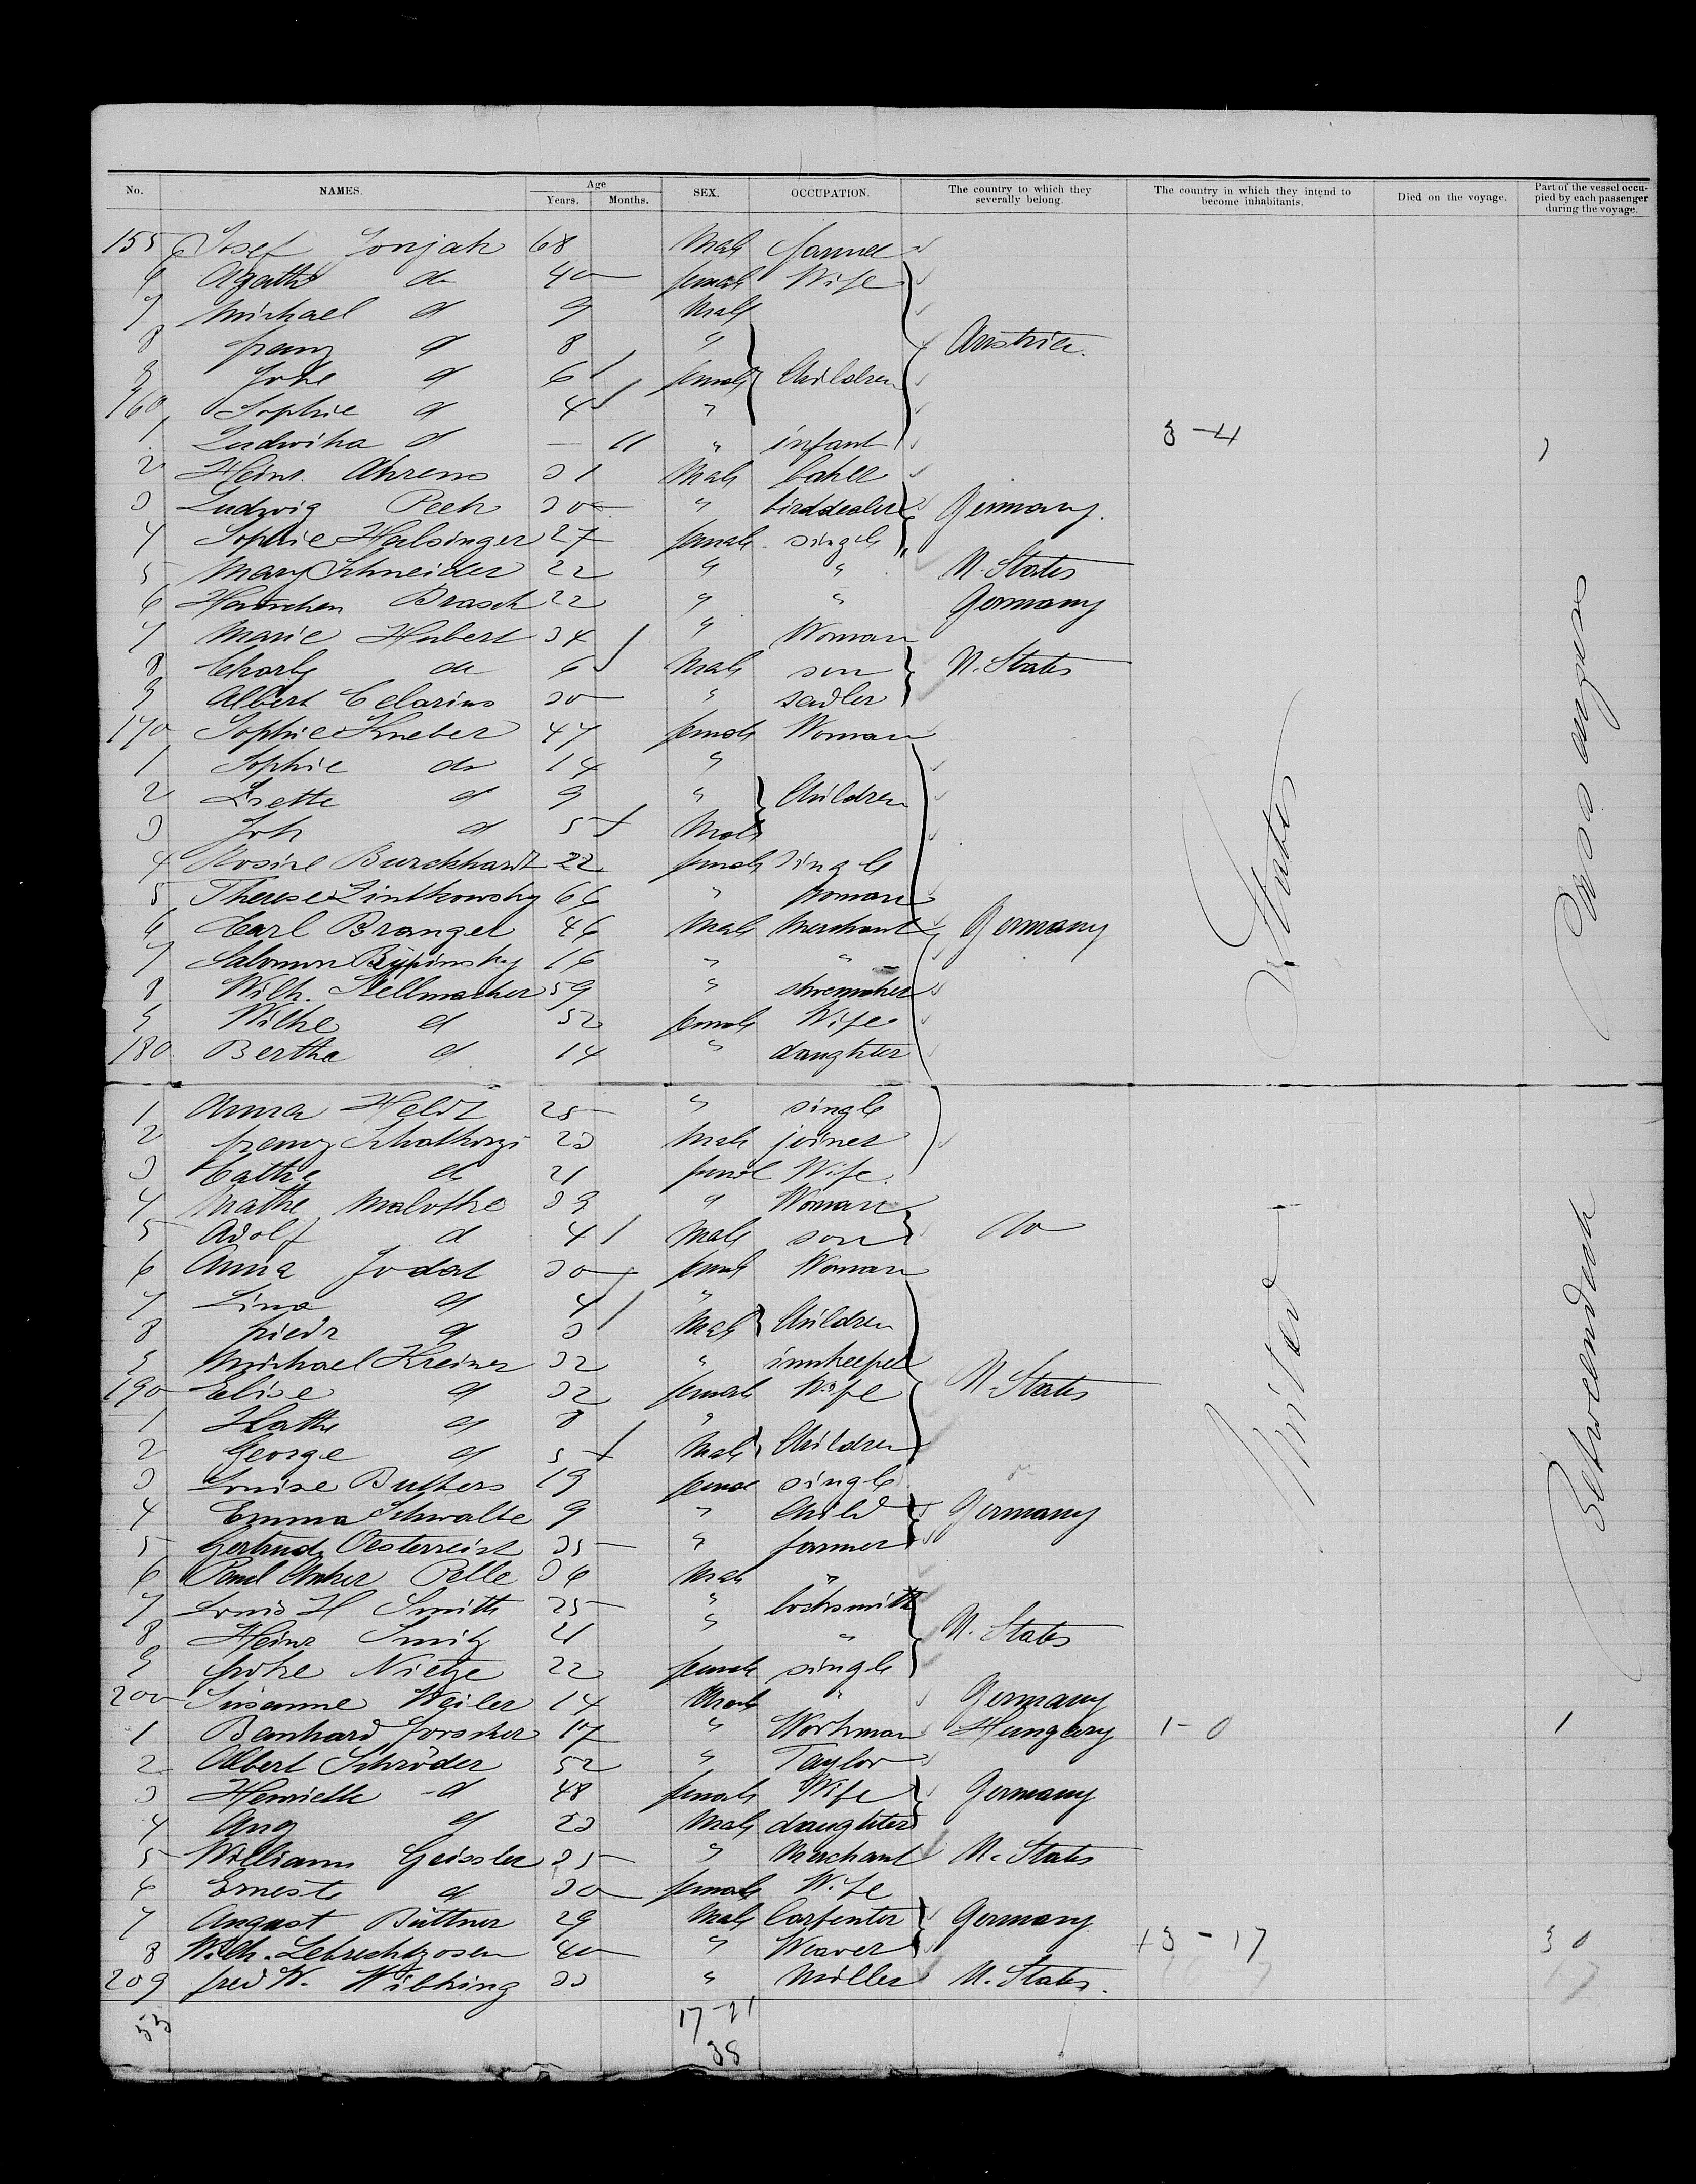 No. NAMES. Age Years. Months. SEX. OCCUPATION. The country to which they severally belong. The country in which they intend to become inhabitants. Died on the voyage. Part of the vessel occupied by each passenger during the voyage.
155 Josef 68 Male farmer
6 Agathe do 40 female Wife
7 Michael d 9 Male
8 franz d 8 " Austria.
9 d 6 female Children
160 Sophie d 4 "
1 Ludwika d — 11 " infant 3-4
2 Heinr. Ahrens 31 Male baker
3 Ludwig Peek 30 " birddealer Germany.
4 Sophie Halsinger 27 female single
5 Mary Schneider 22 " " U. States
6 Hannchen Brasch 22 " " Germany
7 Marie Hubert 34 " Woman
8 Charly do 6 Male son U. States
9 Albert Celarius 30 " sadler
170 Sophie Kneber 47 female Woman
1 Sophie do 14 "
2 Lisette d 9 " Children
3 Joh d 5 Male
4 Rosine Burckhardt 22 female single
5 Therese Zintkowsky 66 " Woman
6 Carl Brangel 46 Male Merchant Germany
7 Salomon 16 " "
8 Wilh. Stellmacher 59 " shoemaker
9 Wilhe d 52 female Wife
180 Bertha d 14 " daughter
1 Anna Heldt 25 " single
2 franz 23 Male joiner
3 Cathe do 21 female Wife
4 Mathe Malotke 39 " Woman
5 Adolf d 4 Male son do
6 Anna Jodat 30 female Woman
7 Lina d 4 "
8 friedr d 3 Male Children
9 Michael Kreiner 32 " innkeeper
190 Elise d 32 female Wife U. States
1 Kathe d 8 "
2 George d 5 Male Children
3 Louise Buthers 19 female single
4 Emma Schwalte 9 " Child Germany
5 Gertrude Oesterreich 35 " farmer
6 Paul Anker Pelle 36 Male "
7 Louis H Smith 25 " locksmith
8 Heinr Smitz 21 " " U. States
9 Nietze 22 female single
200 Susanne Weiler 14 " Germany
1 Bernhard Forscher 17 " Workman Hungary 1-0 1
2 Albert Schröder 52 " Taylor
3 Henriette d 48 female Wife Germany
4 Aug d 23 Male daughter
5 William Geissler 35 " Merchant U. States
6 Ernest d 30 female Wife
7 August Büttner 29 Male Carpenter Germany
8 Wilh. 40 " Weaver 13-17 30
209 fred W. Wilking 33 " Miller U. States.
53 17-21
38
United States
Betweendeck Passengers